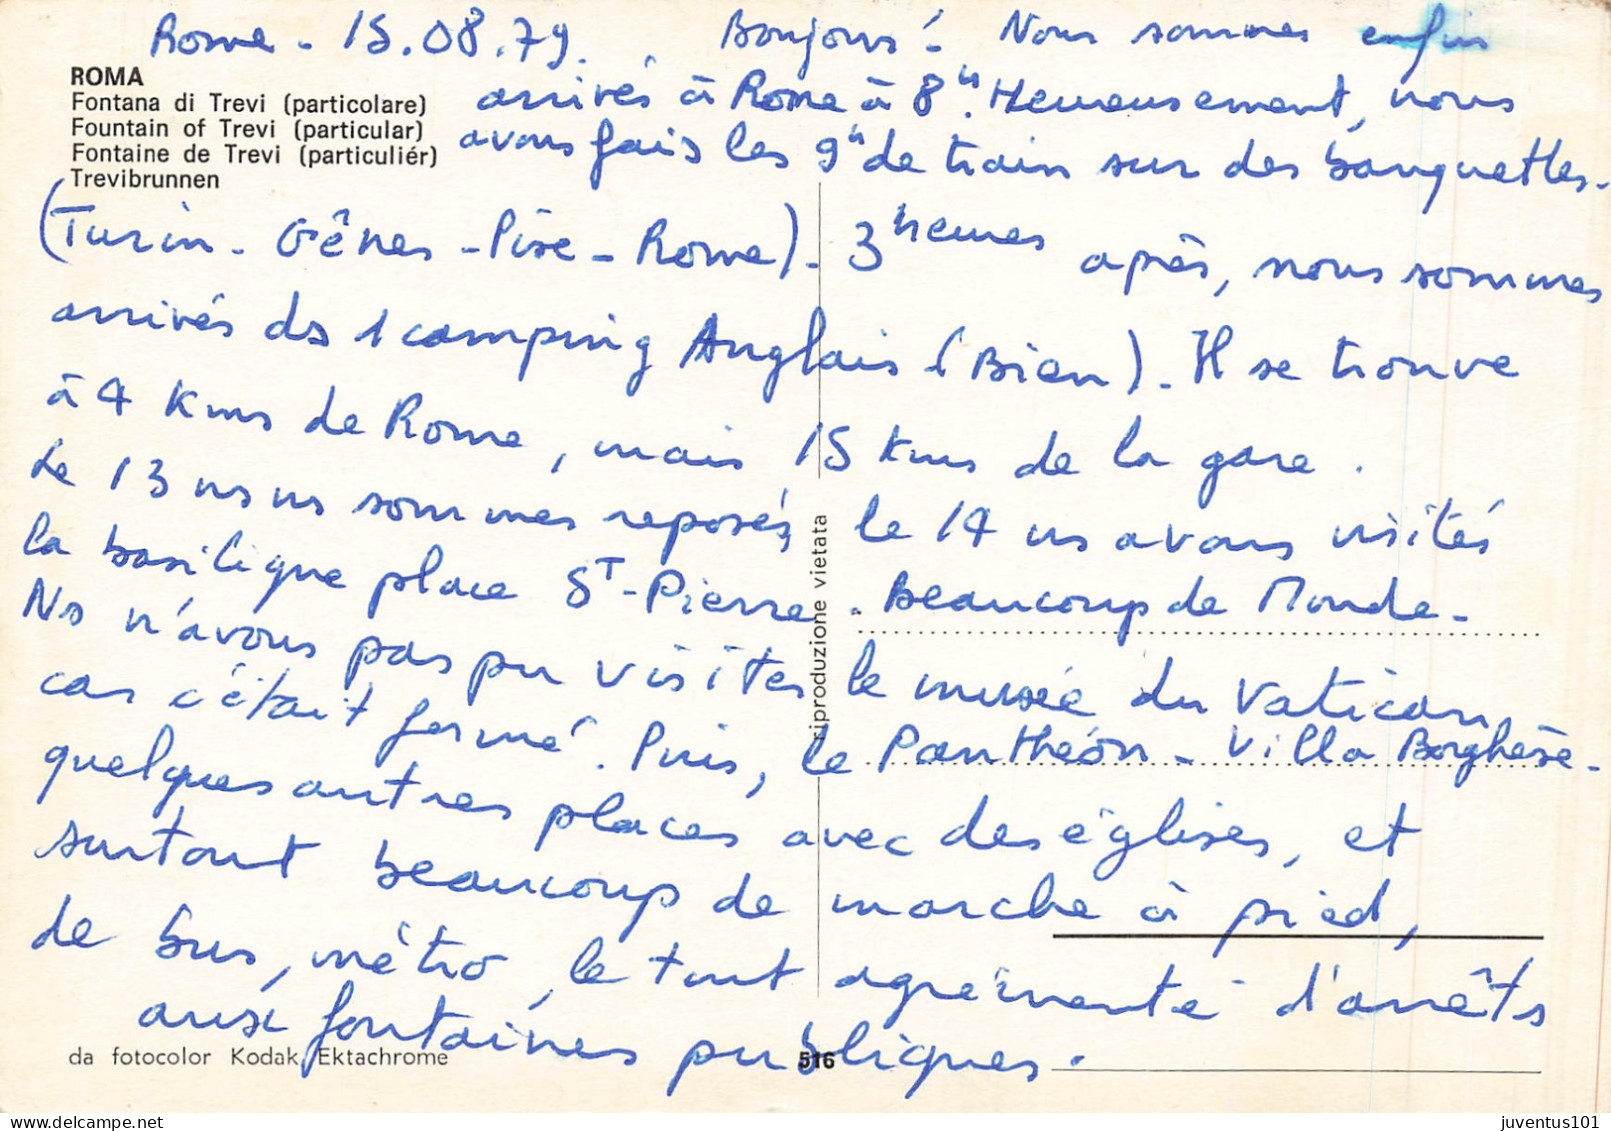 Rome - 15.08.79. Bonjour! Nous sommes enfin
ROMA
Fontana di Trevi (particolare)
Fountain of Trevi (particular)
Fontaine de Trevi (particuliér)
Trevibrunnen
arrivés à Rome à 8h. Heureusement, nous
avons fais les 9h de train sur des banquettes.
(Turin - Gênes - Pise - Rome). 3 heures après, nous sommes
arrivés ds 1 camping Anglais (Bien). Il se trouve
à 4 Kms de Rome, mais 15 Kms de la gare.
Le 13 ns ns sommes reposés, le 14 ns avons visités
la basilique place St-Pierre. Beaucoup de Monde.
Ns n'avons pas pu visiter le musée du Vatican,
car c'était fermé. Puis, le Panthéon - Villa Borghèse.
quelques autres places avec des églises, et
surtout beaucoup de marche à pied,
de bus, métro, le tout agrémenté d'arrêts
aux fontaines publiques.
riproduzione vietata
da fotocolor Kodak Ektachrome
516
juventus101